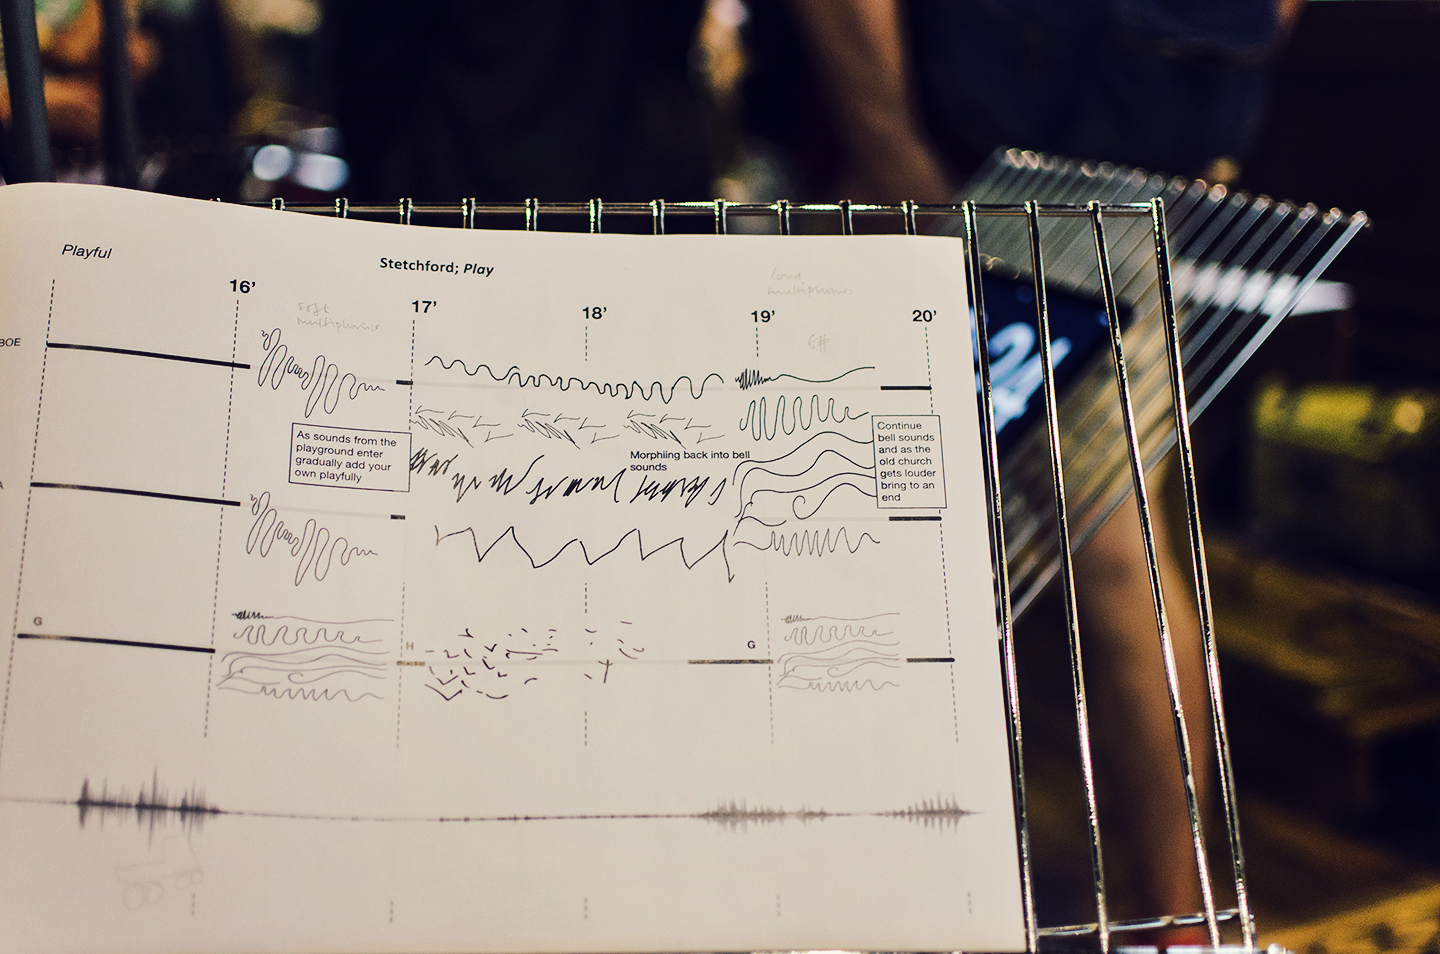 Playful
Stetchford; Play
16'
17'
18'
19'
20'
soft
multiphonics
loud
multiphonics
OE
As sounds from the
playground enter
gradually add your
own playfully
Morphiing back into bell
sounds
Continue
bell sounds
and as the
old church
gets louder
bring to an
end
A
G
H
G
24